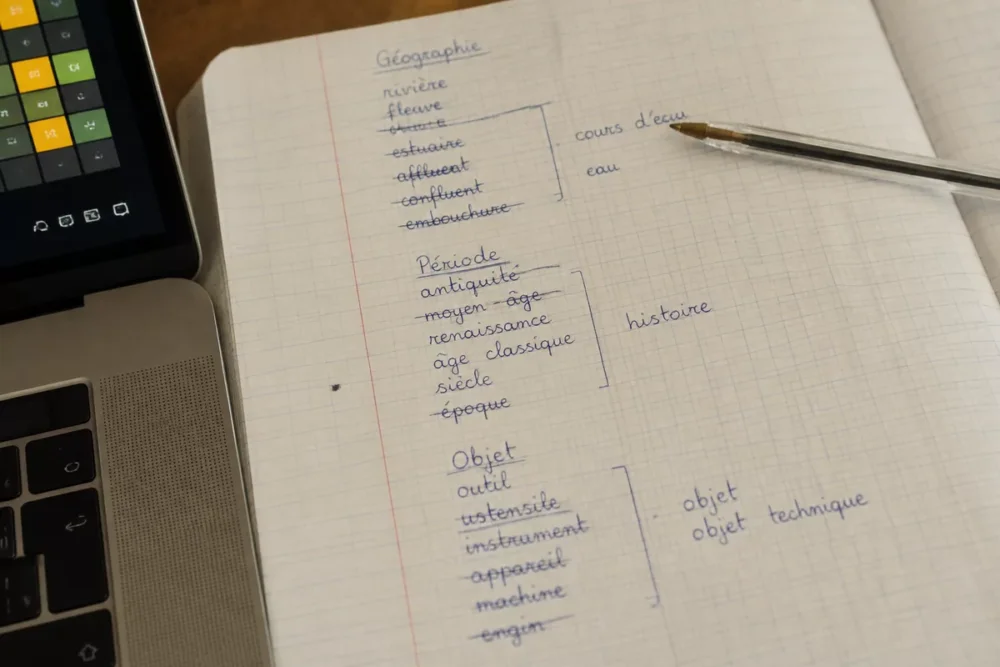 Géographie
rivière
fleuve
estuaire
affluent
confluent
embouchure
cours d'eau
eau
Période
antiquité
moyen âge
renaissance
âge classique
siècle
époque
histoire
Objet
outil
ustensile
instrument
appareil
machine
engin
objet
objet technique